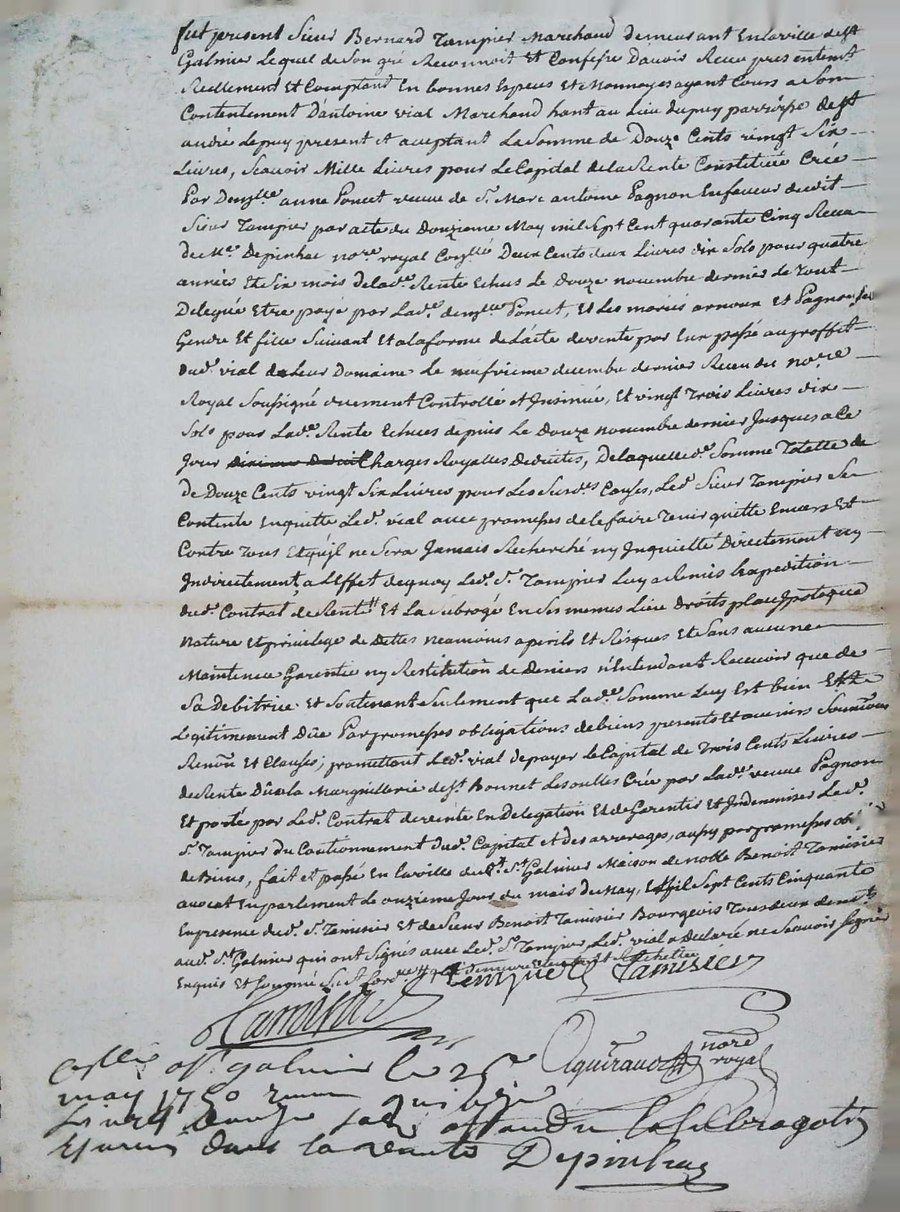 fut present Sieur Bernard Tampier Marchand demeurant Enlaville de St
Galmier Lequel de Son gré Reconnoit Et Confesse Davoir Receu presentemt
Reellement Et Comptant En bonnes Especes Et Monnoyes ayant Cours a Son
Contentement D'antoine vial Marchand hant au Lieu Dupuy parroisse de St
andré Lepuy present et aceptant La Somme de Douze Cents vingt Six
Livres, Scavoir Mille Livres pour Le Capital de la Rente Constituée Créé
Par Demlle anne Poncet veuve de Sr. Marc antoine Pagnon En faveur dudit
Sieur Tampier par acte du Douzieme May mil Sept Cent quarante Cinq Receu
de Me. Depinhac nore royal Deux Cents deux Livres dix Sols pour quatre
année Et Six mois de lade. Rente Echus Le Douze novembre dernier Le Tout
Delegué Etre payé par Lade. demlle Poncet, Et Les mariés arnoux Et Pagnon Ses
Gendre Et fille Suivant Et ala forme de L'acte de vente par Eux passé au proffit
dud. vial de Leur Domaine Le neufvieme decembre dernier Receu du nore
Royal Soussigné duement Controllé Et Insinué, Et vingt Trois Livres dix
Sols pour Lade. Rente Echues depuis Le Douze novembre dernier Jusques a Ce
Jour Charges Royalles Deduites, De laquelle de. Somme Totelle de
de Douze Cents vingt Six Livres pour Les Susdes. Causes, Led. Sieur Tampier Se
Contente Enquitte Led. vial avec promesses de le faire Tenir quitte Envers Et
Contre Tous Et qu'il ne Sera Jamais Recherché ny Inquietté Directement ny
Indirectement, a L'Effet de quoy Led. Sr. Tampier Luy a Remis Lexpedition
dud. Contrat de Rente Et La Subrogé En Ses memes Lieu Droits place Ipoteque
Nature Et privilege de Dettes neamoins a perils Et Risques Et Sans aucune
Maintenue Garentie ny Restitution de Deniers n'Entendant Recevoir que de
Sa Debitrice Et Soutenant Seulement que Lade. Somme Luy Est bien Et
Legitimement Düe Par promesses obligations de biens presents Et avenirs
Renon Et Clauses; promettant Led. vial de payer Le Capital de Trois Cents Livres
de Rente Düe a la Marguillerie de St. Bonnet Lesoulles Crée par Lade. veuve Pagnon
Et porté par Led. Contrat de vente En Delegation Et de Garentir Et Indemniser Led.
Sr. Tampier Du Cautionnement dud. Capital et des arrerages, aussy par promesses
de Biens, fait et passé En la ville dud. St. Galmier Maison de noble Benoit Tamisier
avocat En parlement Le onzieme Jour du mois de May, Mil Sept Cents Cinquante
En presence dud. Sr. Tamisier Et de Sieur Benoit Tamisier Bourgeois Tous deux demts
aud. St. Galmier qui ont Signés avec Led. Sr. Tampier, Led. vial a Declaré ne Scavoir Signer
Enquis Et Sommé
Tampier Tamisier
Tamisier
nore
royal
a St. galmier le 25
may 1750 quinze
Livres
dans la vente Depinhac